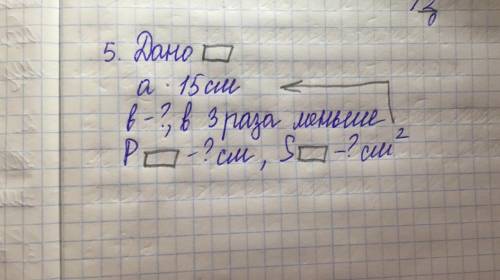 5. Дано ▭
а · 15 см
в - ?, в 3 раза меньше
P ▭ - ? см, S ▭ - ? см²